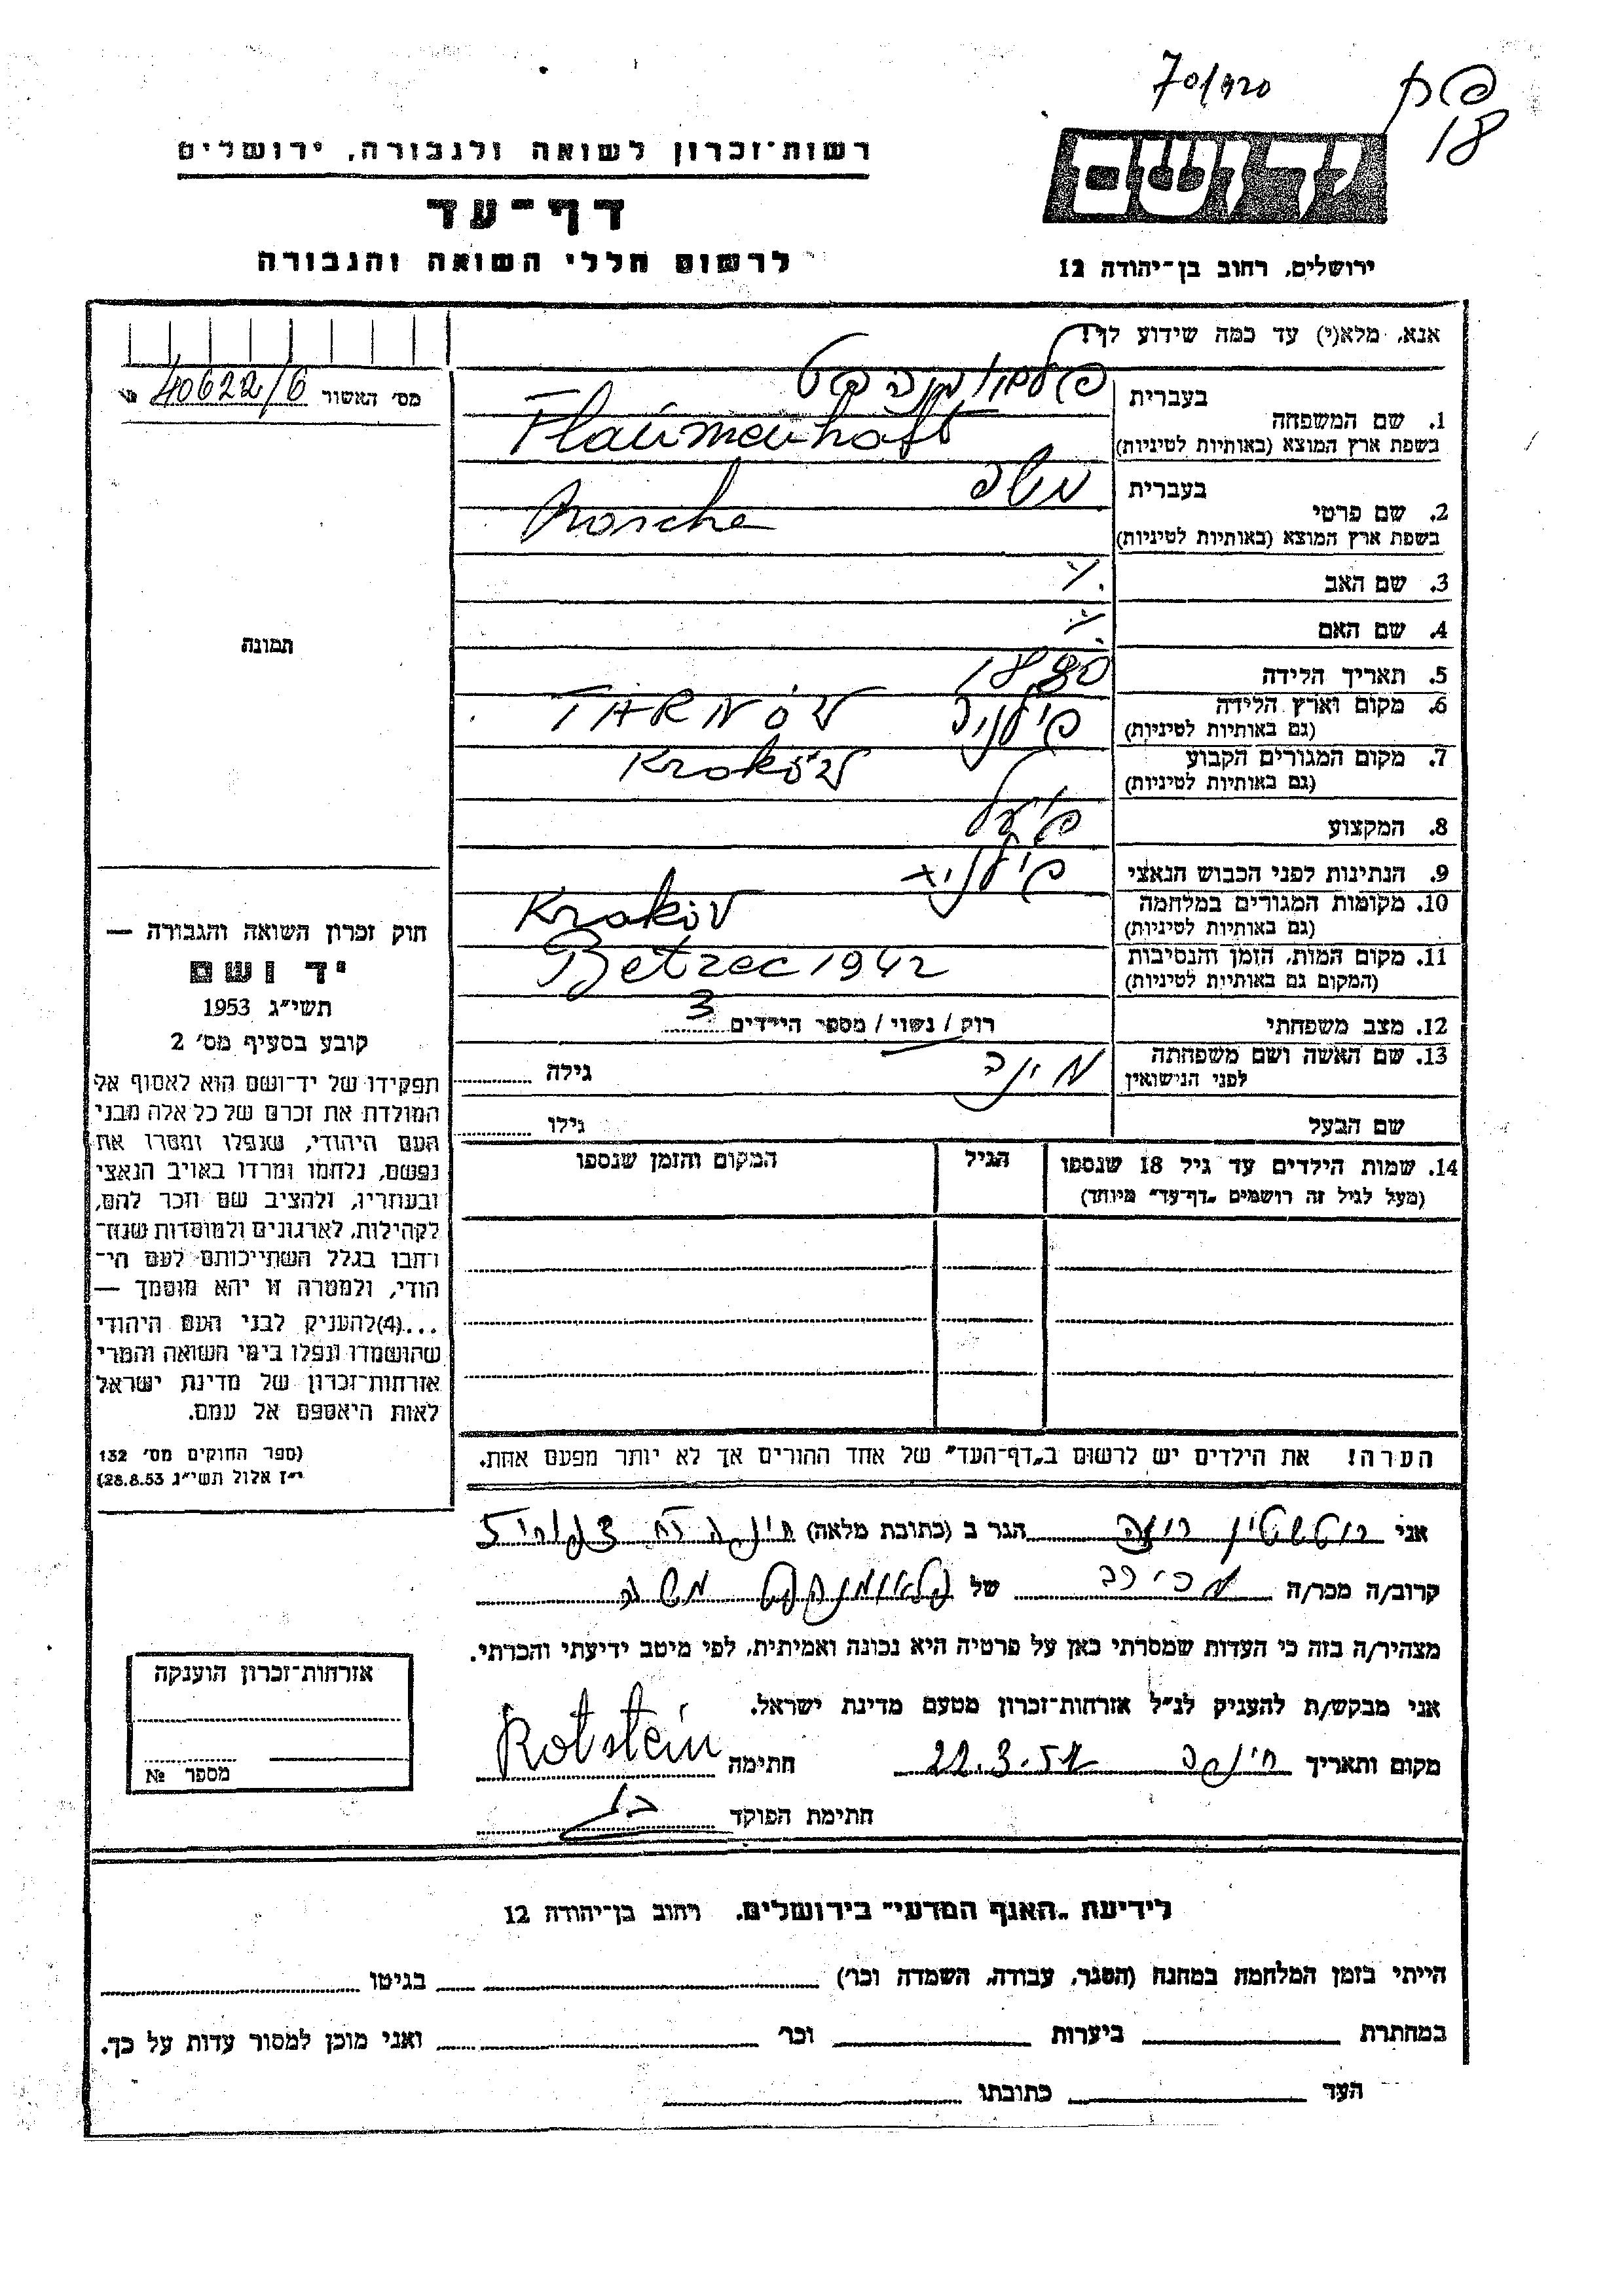 70/920
פק
18
רשות-זכרון לשואה ולגבורה, ירושלים
דף-עד
לרשום חללי השואה והגבורה
יד ושם
ירושלים, רחוב בן-יהודה 12
אנא, מלא(י) עד כמה שידוע לך!
מס׳ האשור 40622/6 №
1. שם המשפחה
בעברית
בשפת ארץ המוצא (באותיות לטיניות) Flaümenhaft
2. שם פרטי
בעברית משה
בשפת ארץ המוצא (באותיות לטיניות) Mosche
3. שם האב
4. שם האם
5. תאריך הלידה 1880
6. מקום וארץ הלידה פולניה TARNÓW
(גם באותיות לטיניות)
7. מקום המגורים הקבוע Kraków
(גם באותיות לטיניות)
8. המקצוע פועל
9. הנתינות לפני הכבוש הנאצי פולנית
10. מקומות המגורים במלחמה Kraków
(גם באותיות לטיניות)
11. מקום המות, הזמן והנסיבות Betzec 1942
(המקום גם באותיות לטיניות)
12. מצב משפחתי רוק / נשוי / מספר הילדים 3
13. שם האשה ושם משפחתה
לפני הנישואין
גילה
שם הבעל
גילו
14. שמות הילדים עד גיל 18 שנספו
(מעל לגיל זה רושמים „דף-עד״ מיוחד)
הגיל
המקום והזמן שנספו
הערה! את הילדים יש לרשום ב„דף-העד״ של אחד ההורים אך לא יותר מפעם אחת.
תמונה
חוק זכרון השואה והגבורה —
יד ושם
תשי״ג 1953
קובע בסעיף מס׳ 2
תפקידו של יד-ושם הוא לאסוף אל
המולדת את זכרם של כל אלה מבני
העם היהודי, שנפלו ומסרו את
נפשם, נלחמו ומרדו באויב הנאצי
ובעוזריו, ולהציב שם וזכר להם,
לקהילות, לארגונים ולמוסדות שנח־
רבו בגלל השתייכותם לעם הי־
הודי, ולמטרה זו יהא מוסמך —
...(4)להעניק לבני העם היהודי
שהושמדו ונפלו בימי השואה והמרי
אזרחות-זכרון של מדינת ישראל
לאות היאספם אל עמם.
(ספר החוקים מס׳ 132
י״ז אלול תשי״ג 28.8.53)
אני רוטשטין רוזה הגר ב (כתובת מלאה) חיפה
קרוב/ה מכר/ה של פלאומנהפט משה
מצהיר/ה בזה כי העדות שמסרתי כאן על פרטיה היא נכונה ואמיתית, לפי מיטב ידיעתי והכרתי.
אני מבקש/ת להעניק לנ״ל אזרחות-זכרון מטעם מדינת ישראל.
מקום ותאריך חיפה 22.3.57 חתימה Rotstein
חתימת הפוקד
אזרחות-זכרון הוענקה
מספר №
לידיעת „האגף המדעי״ בירושלים, רחוב בן-יהודה 12
הייתי בזמן המלחמה במחנה (הסגר, עבודה, השמדה וכו׳) בגיטו
במחתרת ביערות וכו׳ ואני מוכן למסור עדות על כך.
העד כתובתו